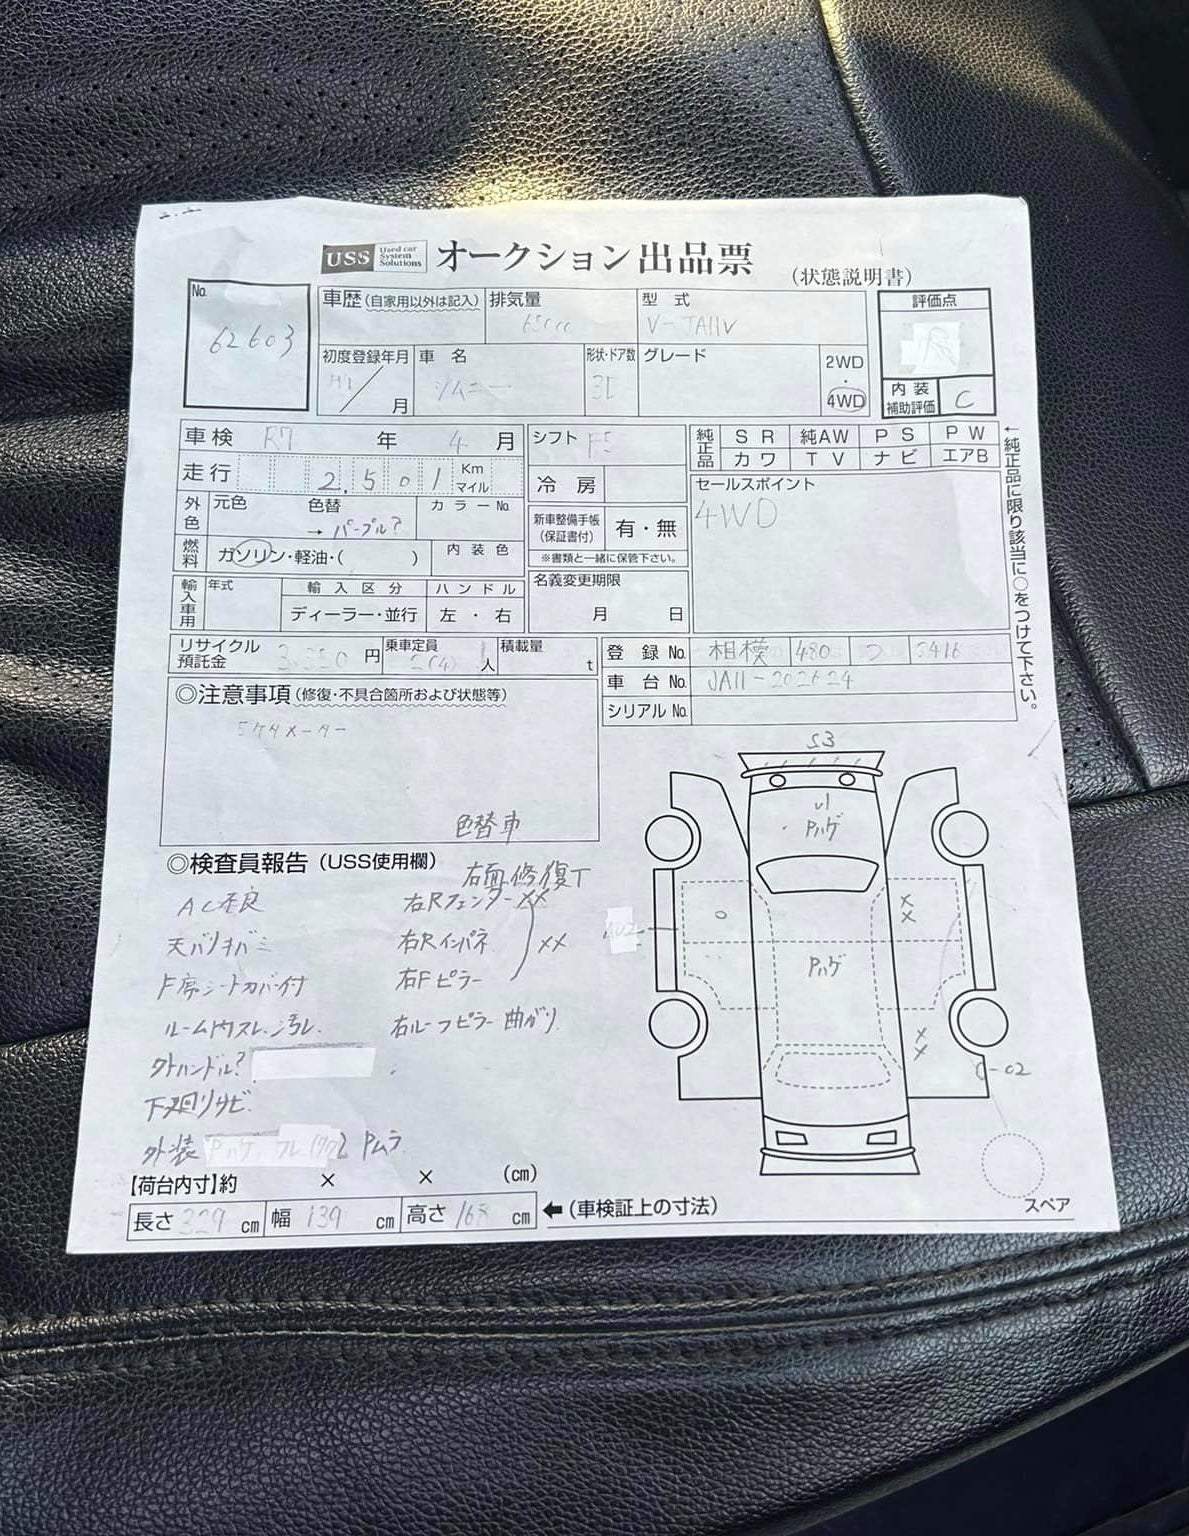 USS Used car System Solutions オークション出品票
(状態説明書)
No. 62603
車歴(自家用以外は記入)
排気量 650cc
型式 V-JA11V
評価点
初度登録年月 月
車名 ジムニー
形状・ドア数 3D
グレード
2WD・4WD
内装補助評価 C
車検 R7年 4月
シフト F5
純正品 SR 純AW PS PW
カワ TV ナビ エアB
←純正品に限り該当に○をつけて下さい。
走行 2,501 Km マイル
冷房
セールスポイント
4WD
外色 元色 色替 カラーNo.
→パープル?
新車整備手帳(保証書付) 有・無
※書類と一緒に保管下さい。
燃料 ガソリン・軽油・( )
内装色
名義変更期限 月 日
輸入車用 年式 輸入区分 ハンドル
ディーラー・並行 左・右
リサイクル預託金 円
乗車定員 2(4)人
積載量 t
登録No. 相模 480
車台No. JA11-202624
シリアルNo.
◎注意事項(修復・不具合箇所および状態等)
5ケタメーター
色替車
S3
U1
Pハゲ
Pハゲ
××
××
C-02
スペア
◎検査員報告(USS使用欄)
右面修復丁
AC不良
右Rフェンダー××
右Rインパネ
××
F席シートカバー付
右Fピラー
ルーム内スレ、汚レ.
右ルーフピラー曲がり
外ハンドル?
下廻リサビ.
外装 Pムラ
【荷台内寸】約 × × (cm)
長さ 329cm 幅 139cm 高さ cm ←(車検証上の寸法)